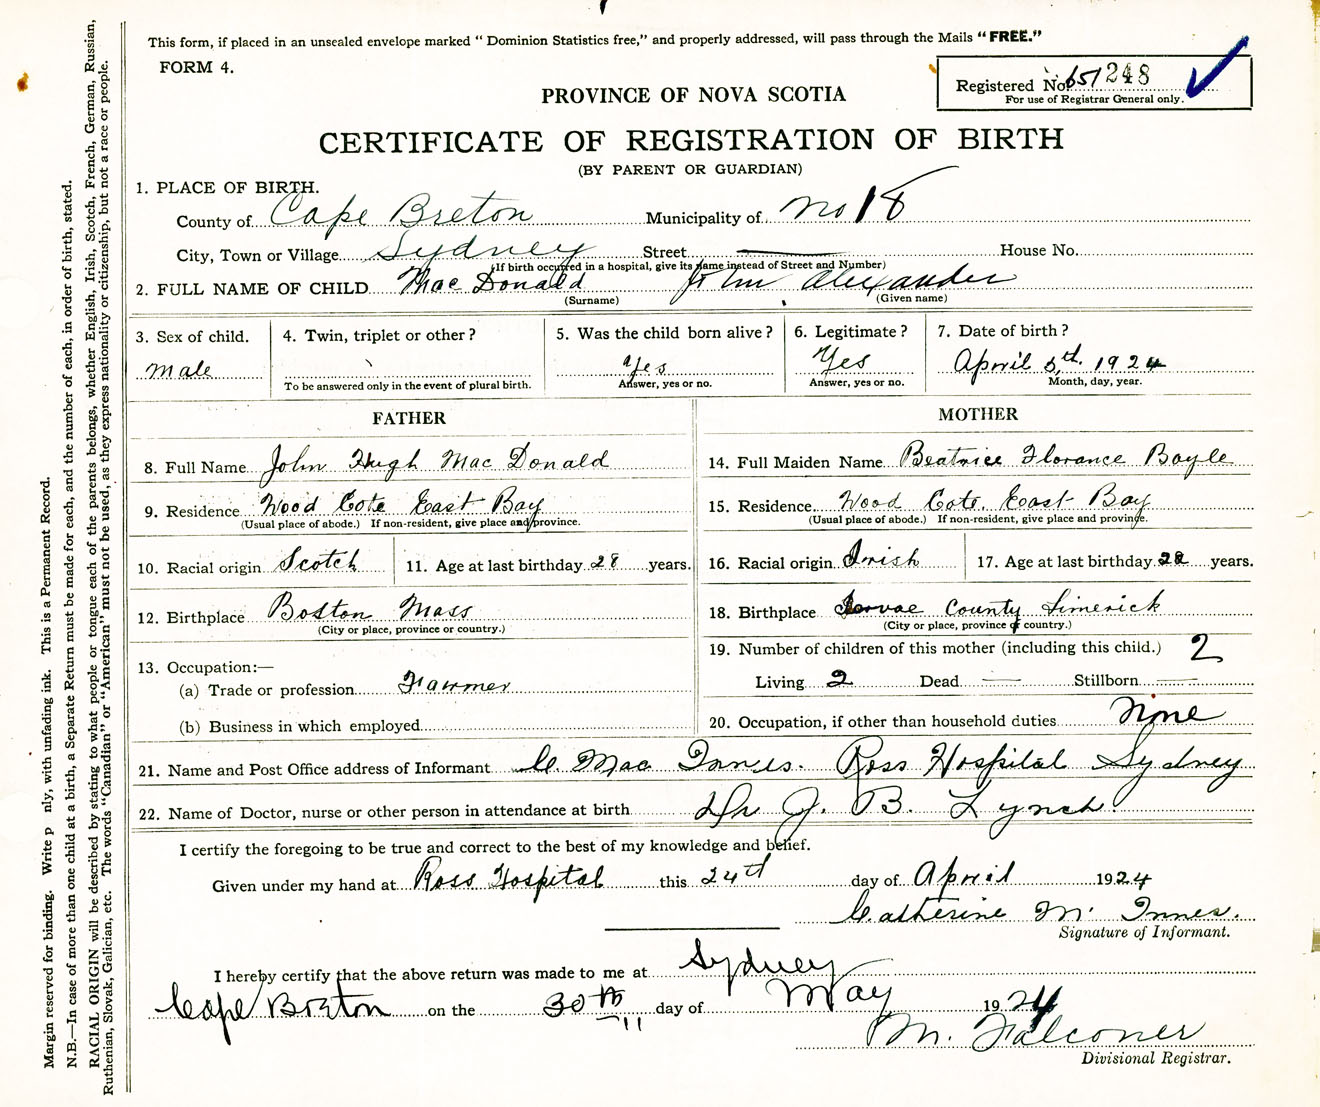 This form, if placed in an unsealed envelope marked " Dominion Statistics free," and properly addressed, will pass through the Mails "FREE."
FORM 4.
Registered No. 651248
For use of Registrar General only.
PROVINCE OF NOVA SCOTIA
CERTIFICATE OF REGISTRATION OF BIRTH
(BY PARENT OR GUARDIAN)
1. PLACE OF BIRTH.
County of Cape Breton Municipality of No 18
City, Town or Village Sydney Street House No.
(If birth occurred in a hospital, give its name instead of Street and Number)
2. FULL NAME OF CHILD Mac Donald John Alexander
(Surname) (Given name)
3. Sex of child. 4. Twin, triplet or other? 5. Was the child born alive? 6. Legitimate? 7. Date of birth?
Male Yes Yes April 5th 1924
To be answered only in the event of plural birth. Answer, yes or no. Answer, yes or no. Month, day, year.
FATHER MOTHER
8. Full Name John Hugh Mac Donald 14. Full Maiden Name Beatrice Florance Boyle
9. Residence Wood Cote East Bay 15. Residence Wood Cote. East Bay
(Usual place of abode.) If non-resident, give place and province. (Usual place of abode.) If non-resident, give place and province.
10. Racial origin Scotch 11. Age at last birthday 28 years. 16. Racial origin Irish 17. Age at last birthday 28 years.
12. Birthplace Boston Mass 18. Birthplace County Limerick
(City or place, province or country.) (City or place, province or country.)
13. Occupation:— 19. Number of children of this mother (including this child.) 2
(a) Trade or profession Farmer Living 2 Dead — Stillborn —
(b) Business in which employed 20. Occupation, if other than household duties None
21. Name and Post Office address of Informant C Mac Innes. Ross Hospital Sydney
22. Name of Doctor, nurse or other person in attendance at birth Dr J. B. Lynch.
I certify the foregoing to be true and correct to the best of my knowledge and belief.
Given under my hand at Ross Hospital this 24th day of April 1924
Catherine Mc Innes.
Signature of Informant.
I hereby certify that the above return was made to me at Sydney
Cape Breton on the 30th day of May 1924
M. Falconer
Divisional Registrar.
Margin reserved for binding. Write p nly, with unfading ink. This is a Permanent Record.
N.B.—In case of more than one child at a birth, a Separate Return must be made for each, and the number of each, in order of birth, stated.
RACIAL ORIGIN will be described by stating to what people or tongue each of the parents belongs, whether English, Irish, Scotch, French, German, Russian,
Ruthenian, Slovak, Galician, etc. The words "Canadian" or "American" must not be used, as they express nationality or citizenship, but not a race or people.